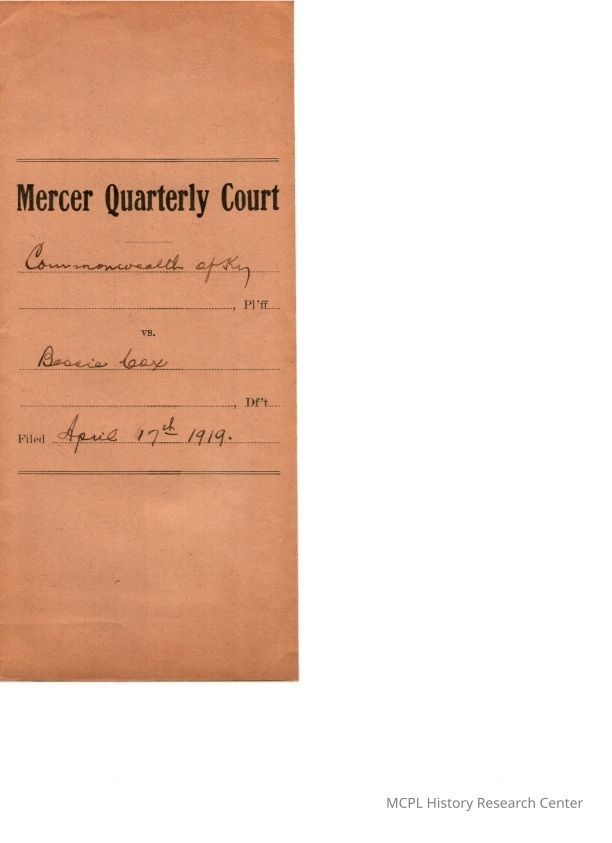 Mercer Quarterly Court
Commonwealth of Ky
, Pl'ff.
vs.
Bessie Cox
, Df't.
Filed April 17th 1919.
MCPL History Research Center